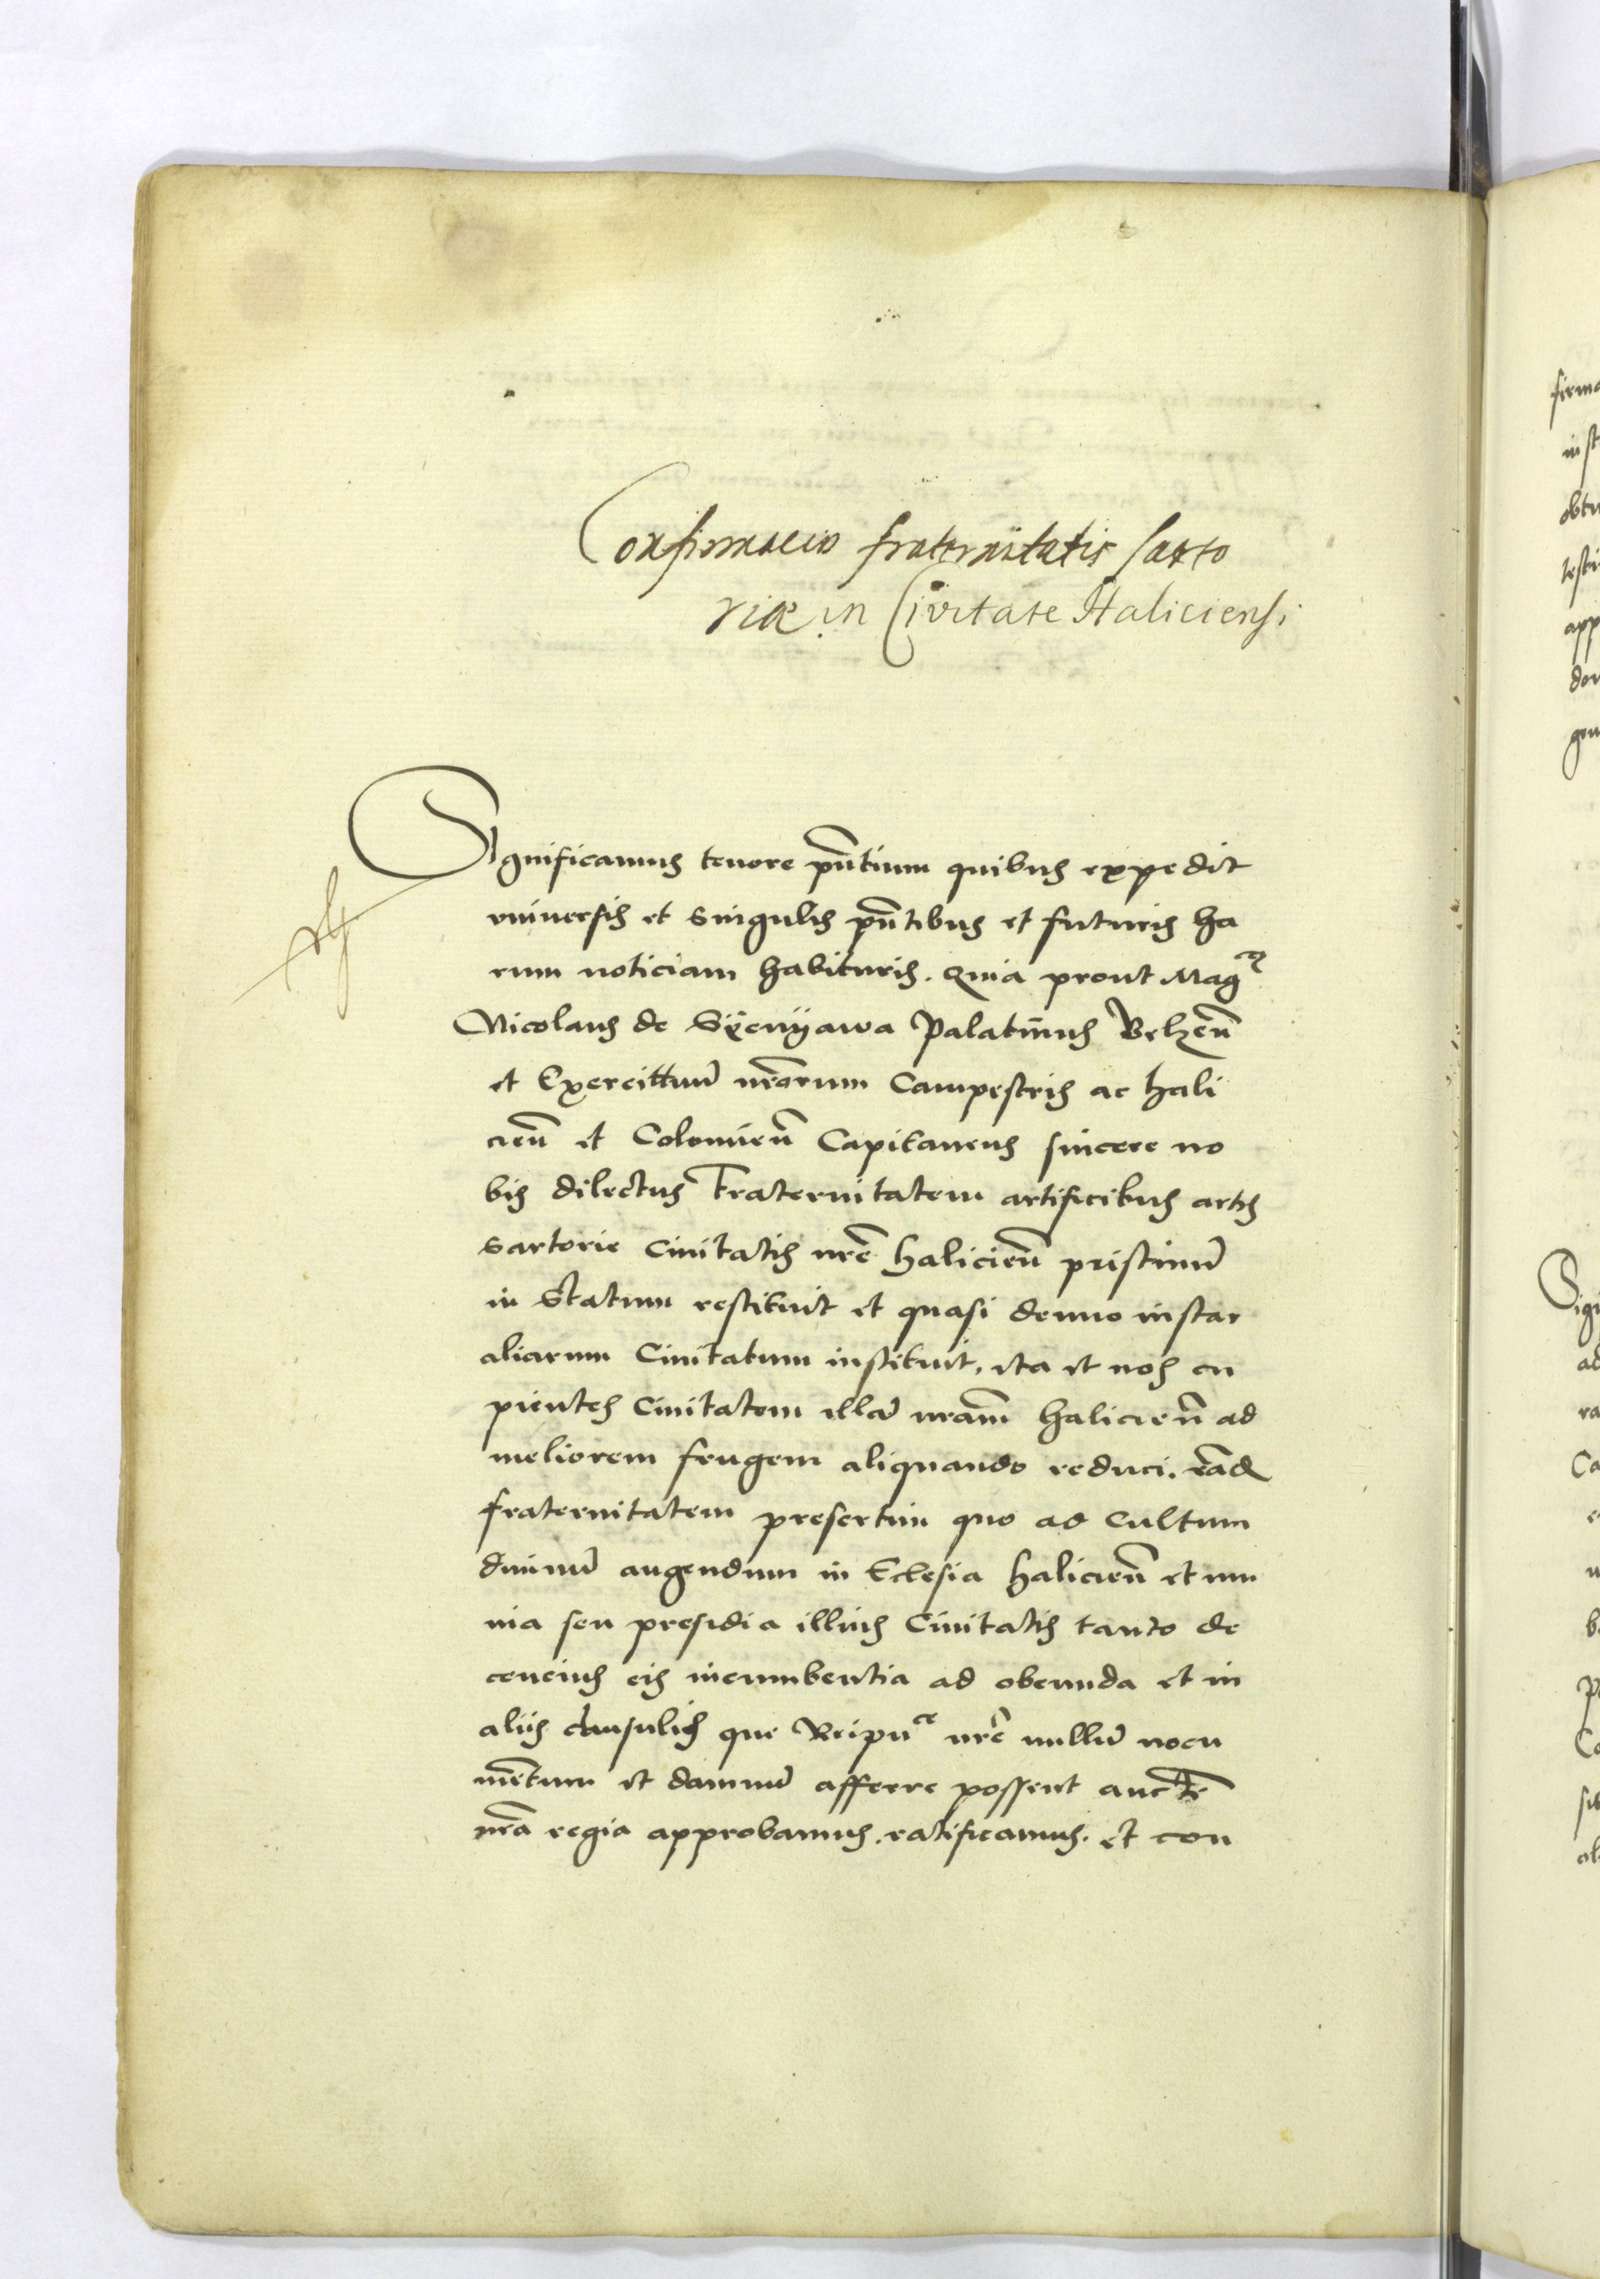 Confirmacio fraternitatis Sarto
riæ in Civitate Haliciensi
Significamus tenore pñtium quibus expedit
universis et singulis pñtibus et futuris ha
rum noticiam habituris. Quia prout Magcꝰ
Nicolaus de Syenyawa Palatinus Belzeñ
et Exercituũ nr̃orum Campestris ac hali
cieñ et Colomieñ Capitaneus sincere no
bis dilectus Fraternitatem artificibus artis
sartorie Civitatis nr̃e halicieñ pristinũ
in Statum restituit et quasi denuo instar
aliarum Civitatum instituit. ita et nos cu
pientes Civitatem illã nr̃am halicieñ ad
meliorem frugem aliquando reduci. eãd
fraternitatem presertim quo ad Cultum
divinũ augendum in Eclesia halicieñ et mu
nia seu presidia illius Civitatis tanto de
cencius eis incumbentia ad obeunda et in
aliis clausulis que Reipuce nr̃e nullũ nocu
mẽtum et damnũ afferre possent aucte
nr̃a regia approbamus. ratificamus. et con